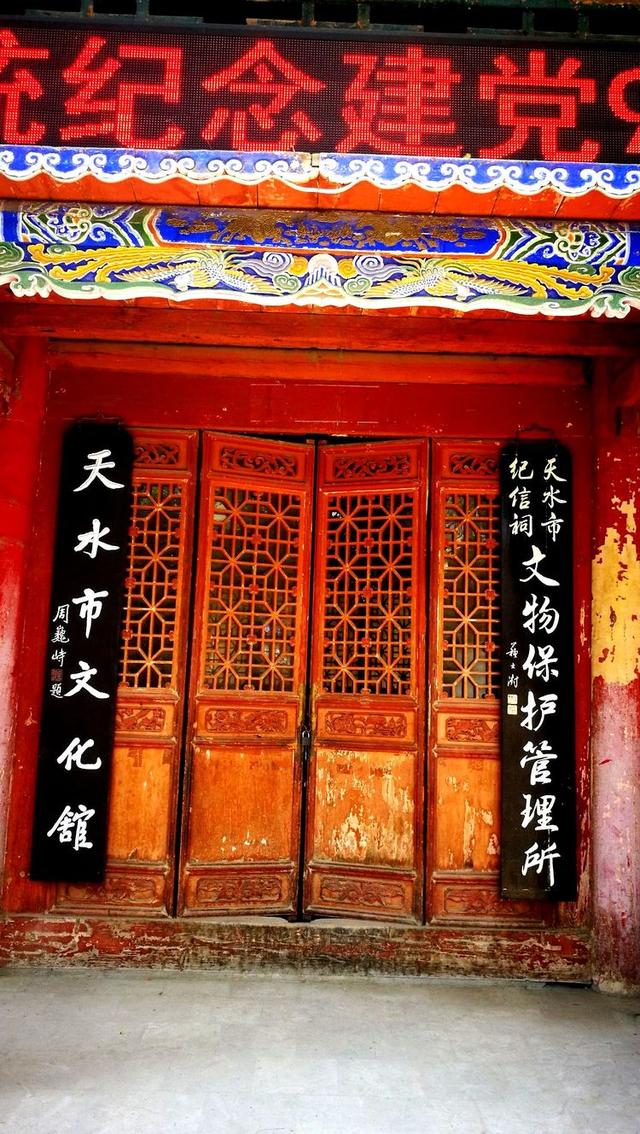 纪念建党9
天水市文化馆
周巍峙
题
天水市
纪信祠
文物保护管理所